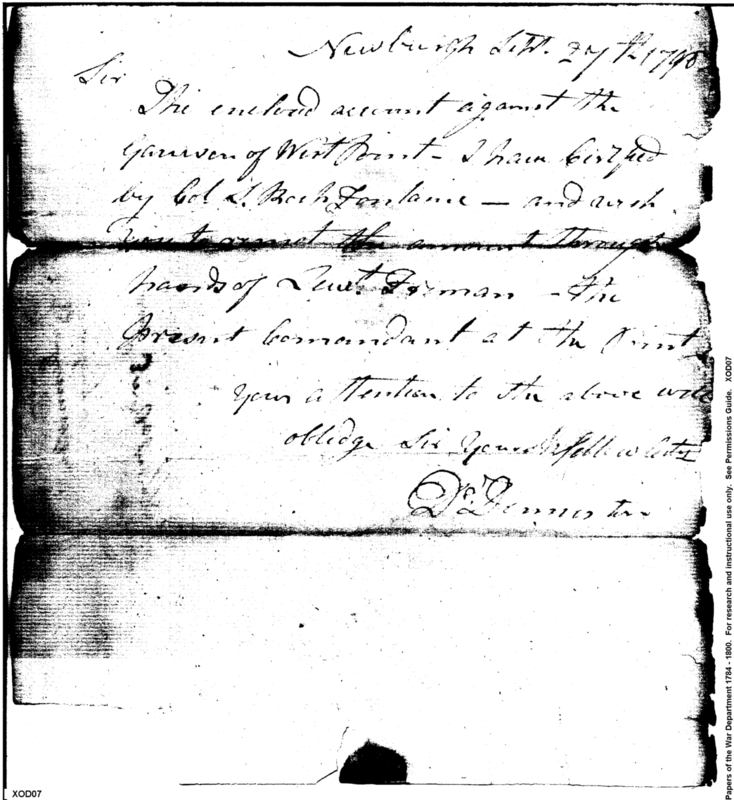 Newburgh Sept. 27th 1798
Sir
The enclosed account against the
Garrison of West Point - I have Certified
by Col L. Roch Fontaine - and wish
you to remit the amount through
hands of Lieut. Forman - the
present Comandant at the Point
Your attention to the above will
obledge Sir Yours
Dl. Denniston
Papers of the War Department 1784 - 1800. For research and instructional use only. See Permissions Guide. XOD07
XOD07